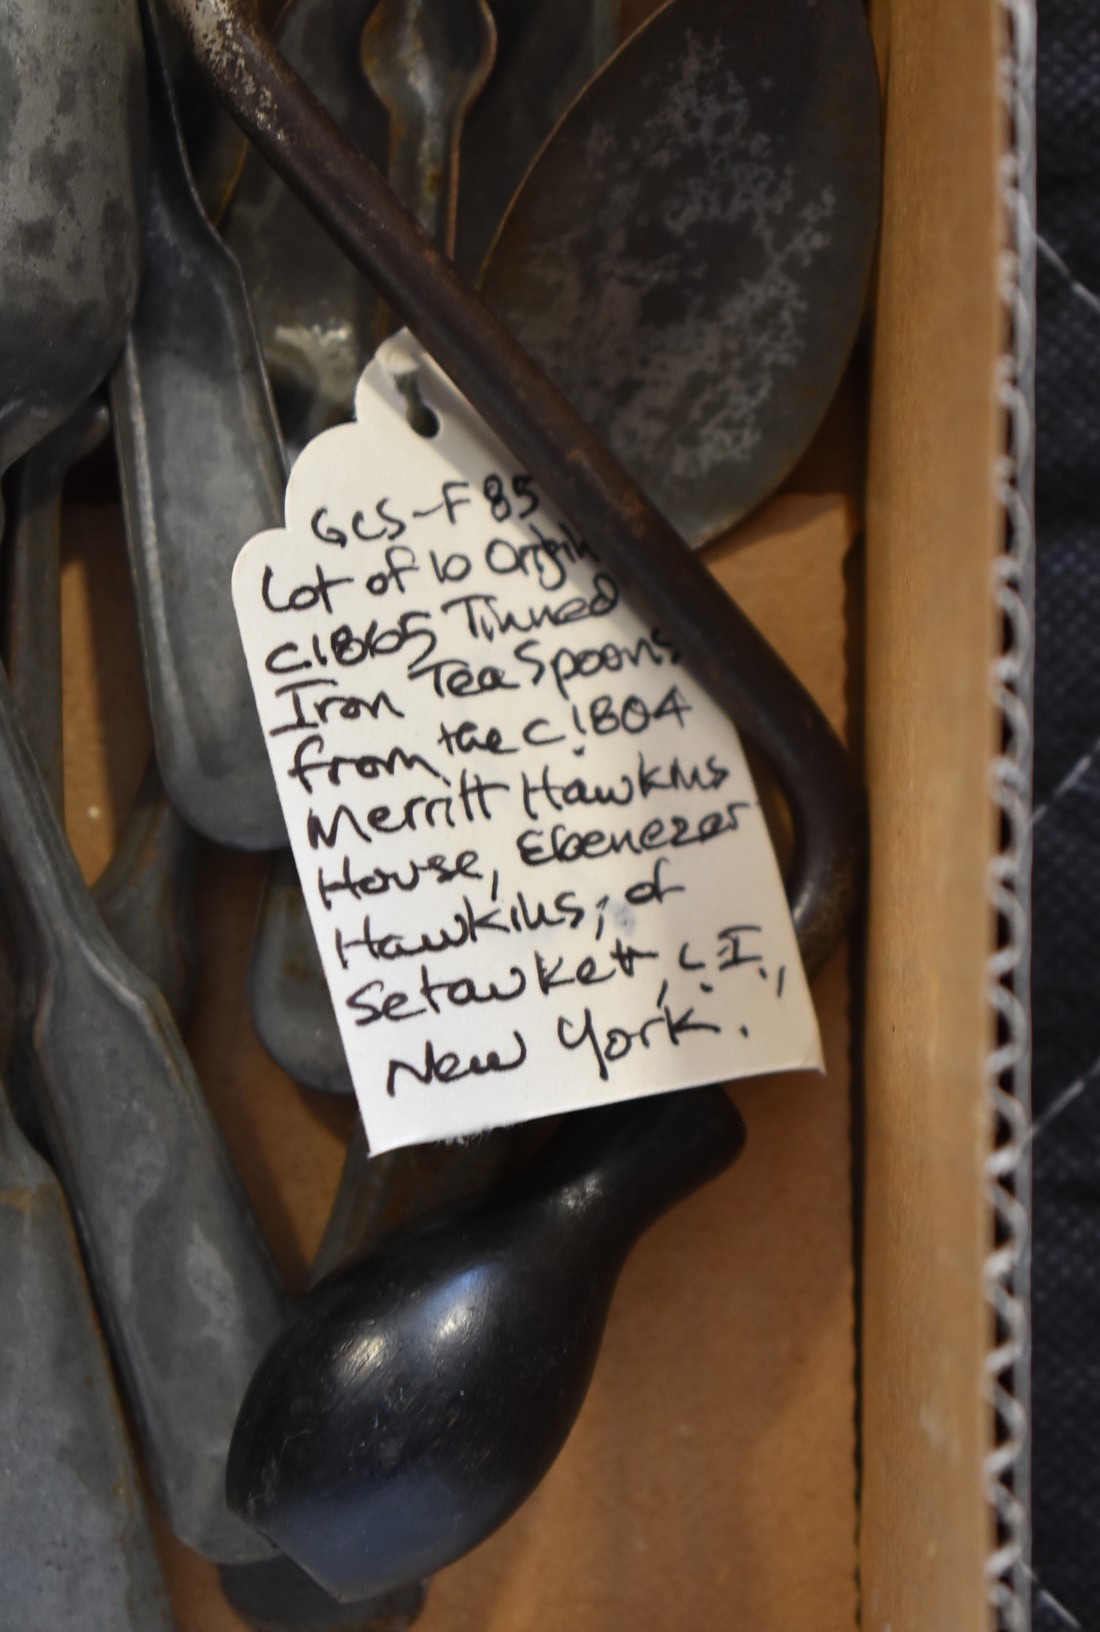 GCS-F 85
Lot of 10 Origin
c.1865 Tinned
Iron Tea Spoons
from the c.1804
Merritt Hawkins
House, Ebenezer
Hawkins, of
Setauket, L.I.,
New York.